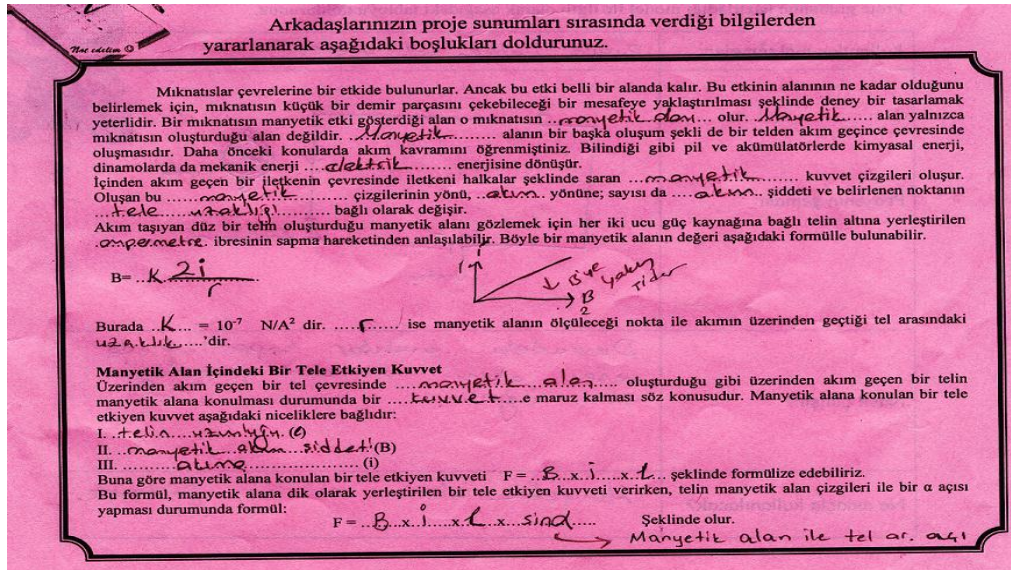 Arkadaşlarınızın proje sunumları sırasında verdiği bilgilerden
yararlanarak aşağıdaki boşlukları doldurunuz.
Not edelim
Mıknatıslar çevrelerine bir etkide bulunurlar. Ancak bu etki belli bir alanda kalır. Bu etkinin alanının ne kadar olduğunu
belirlemek için, mıknatısın küçük bir demir parçasını çekebileceği bir mesafeye yaklaştırılması şeklinde deney bir tasarlamak
yeterlidir. Bir mıknatısın manyetik etki gösterdiği alan o mıknatısın ..manyetik alanı... olur. .Manyetik..... alan yalnızca
mıknatısın oluşturduğu alan değildir. .Manyetik......... alanın bir başka oluşum şekli de bir telden akım geçince çevresinde
oluşmasıdır. Daha önceki konularda akım kavramını öğrenmiştiniz. Bilindiği gibi pil ve akümülatörlerde kimyasal enerji,
dinamolarda da mekanik enerji ....elektrik........... enerjisine dönüşür.
İçinden akım geçen bir iletkenin çevresinde iletkeni halkalar şeklinde saran ....manyetik...... kuvvet çizgileri oluşur.
Oluşan bu ......manyetik............ çizgilerinin yönü, ..akım.. yönüne; sayısı da .....akım.. şiddeti ve belirlenen noktanın
....tele uzaklığı.......... bağlı olarak değişir.
Akım taşıyan düz bir telin oluşturduğu manyetik alanı gözlemek için her iki ucu güç kaynağına bağlı telin altına yerleştirilen
.ampermetre. ibresinin sapma hareketinden anlaşılabilir. Böyle bir manyetik alanın değeri aşağıdaki formülle bulunabilir.
B= ..K 2i / r
i B 2 ↓ B'ye yakın rider
Burada ..K.... = 10⁻⁷ N/A² dir. .....r...... ise manyetik alanın ölçüleceği nokta ile akımın üzerinden geçtiği tel arasındaki
uzaklık.....'dir.
Manyetik Alan İçindeki Bir Tele Etkiyen Kuvvet
Üzerinden akım geçen bir tel çevresinde ....manyetik...alan..... oluşturduğu gibi üzerinden akım geçen bir telin
manyetik alana konulması durumunda bir ....kuvvet....e maruz kalması söz konusudur. Manyetik alana konulan bir tele
etkiyen kuvvet aşağıdaki niceliklere bağlıdır:
I. ..telin....uzunluğu. (ℓ)
II. ..manyetik..alan..şiddeti(B)
III. ..........akıma................... (i)
Buna göre manyetik alana konulan bir tele etkiyen kuvveti F = ..B..x..i.....x..L... şeklinde formülize edebiliriz.
Bu formül, manyetik alana dik olarak yerleştirilen bir tele etkiyen kuvveti verirken, telin manyetik alan çizgileri ile bir α açısı
yapması durumunda formül:
F = ..B...x..i....x..L..x...sinα..... Şeklinde olur.
→ Manyetik alan ile tel ar. açı